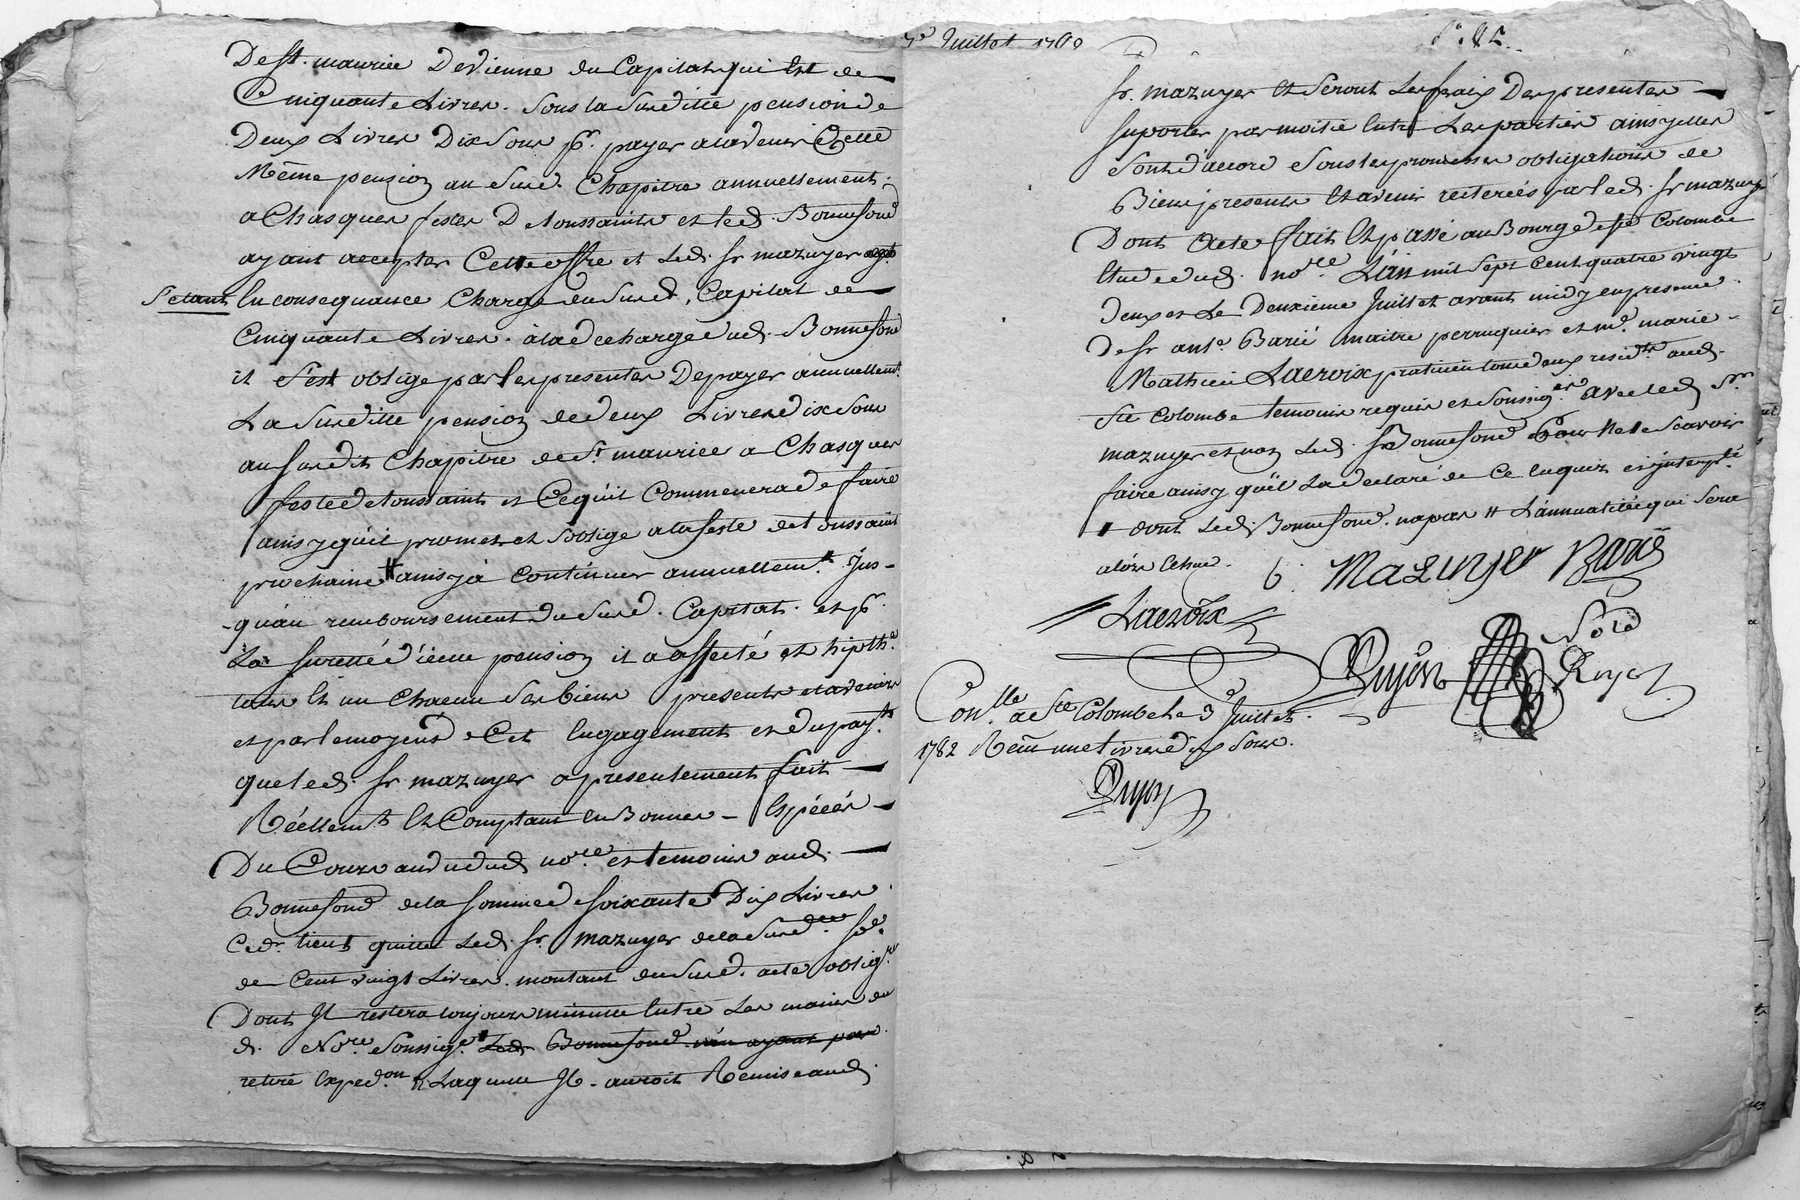 De st. maurice De Vienne du Capital qui Est de
Cinquante Livres. sous la susditte pension de
Deux Livres Dix Sous pr. payer a lavenir Cette
Même pension au susd. Chapitre annuellement
a Chasques festes De toussaints et led. Bonnefond
ayant accepter Cette offre et Led. sr mazuyer
s'etant En consequance Chargé du susd. Capital de
Cinquante Livres. à la decharge dud. Bonnefond
il s'est obligé par les presentes De payer annuellemt.
La susditte pension de deux Livres dix sous
au susdit Chapitre de st maurice a Chasques
feste de toussaints et Ce qu'il Commencera de faire
ainsy qu'il promet et s'oblige a la feste de toussaint
prochaine # ainsy à Continuer annuellemt. Jus-
-qu'au remboursement du susd. Capital. et pr.
La suretté d'icelle pension il a affecté et hipthe.
tous Et un Chacun ses biens presents et avenirs
et par le moyend de Cet Engagement et du payt.
que led. sr mazuyer a presentement fait
Réellemt Et Comptant En Bonnes Espéces
Du Cours au vu dud. nore. et temoins aud.
Bonnefond de la somme de soixante Dix Livres
led. tient quitte Led. sr. mazuyer de la susde. se.
de Cent vingt Livres. montant du susd. acte oblige.
Dont Il restera toujours minutte Entre Les mains du
d. Nore. soussigé. Led. Bonnefond n'en ayant pas
retiré Expedon. Laquelle Il auroit Remise aud.
2e Juillet 1782
sr. mazuyer Et seront Les frais Des presentes
suportés par moitié Entre Les parties ainsy qu'elles
sont d'accord sous les promesses obligations de
Biens presents Et avenir reiterées par led. sr mazuyer
Dont Acte fait Et passé au Bourg de ste Colombe
Etude dud. nore. L'an mil sept Cent quatre vingt
deux et Le Deuxieme Juillet avant midy en presence
De sr ante. Barié maitre perruquier et me. marie
Mathieu Lacroix praticien tous deux residts. aud.
ste Colombe temoins requis et soussigés. avec led. sr
mazuyer et non Led. sr Bonnefond Pour Ne le Scavoir
faire ainsy qu'il La declaré de Ce Enquis et interpelé
dont Led. Bonnefond. na pas # L'annuaitée qui sera
alors Echue.
Mazuyer Barié
Lacroix
Guyon Nore Royal
Conlle. a ste Colombe le 3 Juillet
1782 Reçu une livres dix sous.
Guyon